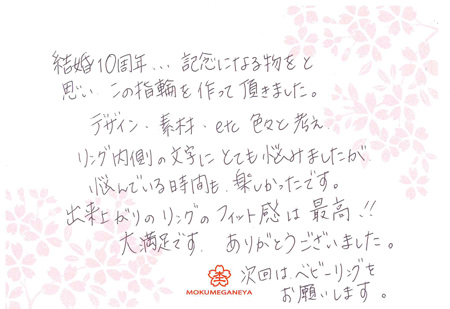 結婚10周年... 記念になる物をと
思い この指輪を作って頂きました。
デザイン・素材・etc 色々と考え
リング内側の文字に とても悩みましたが
悩んでいる時間も、楽しかったです。
出来上がりのリングのフィット感は 最高!!
大満足です。 ありがとうございました。
次回は、ベビーリングを
お願いします。
MOKUMEGANEYA